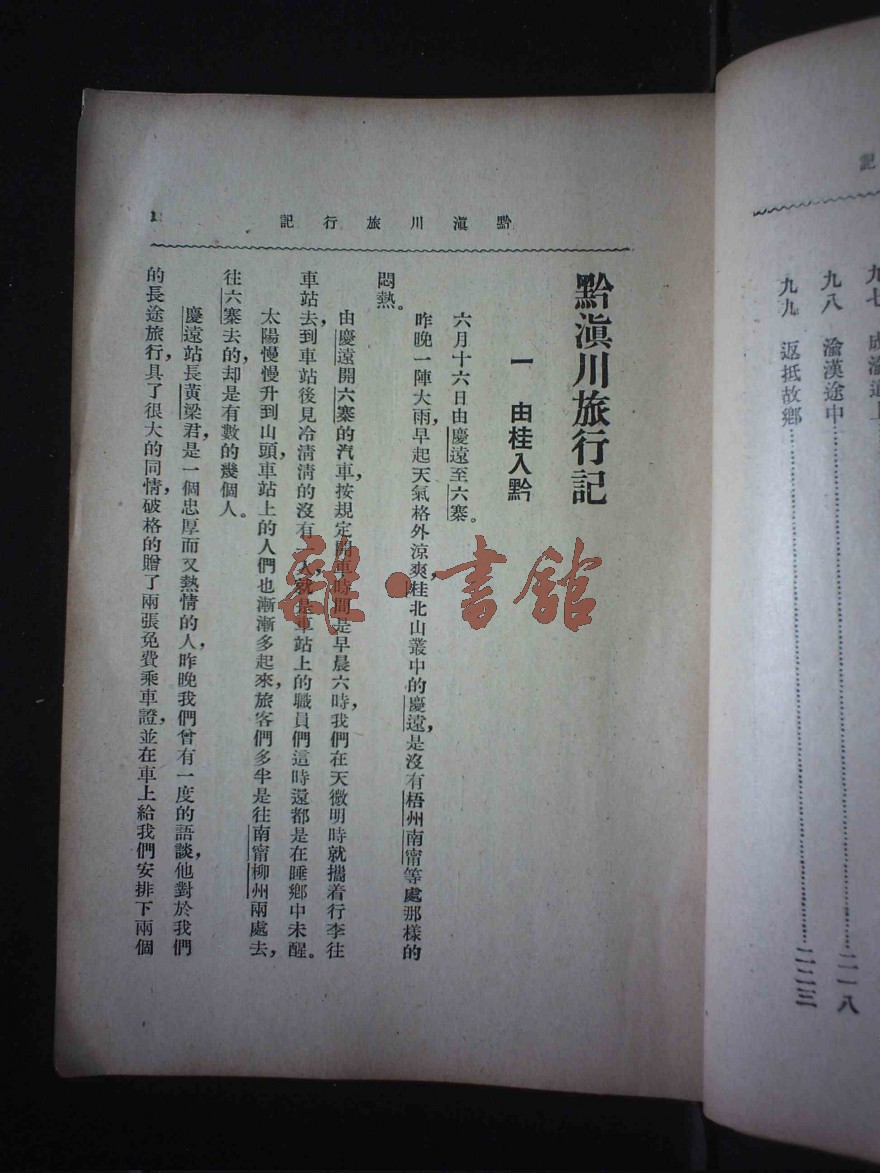 記
九八 渝漢途中……二一八
九九 返抵故鄉……二二三
黔滇川旅行記
1
黔滇川旅行記
一 由桂入黔
六月十六日由慶遠至六寨。
昨晚一陣大雨，早起天氣格外涼爽，桂北山叢中的慶遠，是沒有梧州南甯等處那樣的
悶熱。
由慶遠開六寨的汽車，按規定開車時間是早晨六時，我們在天微明時就攜着行李往
車站去，到車站後見冷清清的沒有一人，就是車站上的職員們這時還都是在睡鄉中未醒。
太陽慢慢升到山頭，車站上的人們也漸漸多起來，旅客們多半是往南甯柳州兩處去，
往六寨去的，却是有數的幾個人。
慶遠站長黃梁君，是一個忠厚而又熱情的人，昨晚我們曾有一度的語談，他對於我們
的長途旅行，具了很大的同情，破格的贈了兩張免費乘車證，並在車上給我們安排下兩個
雜·書館